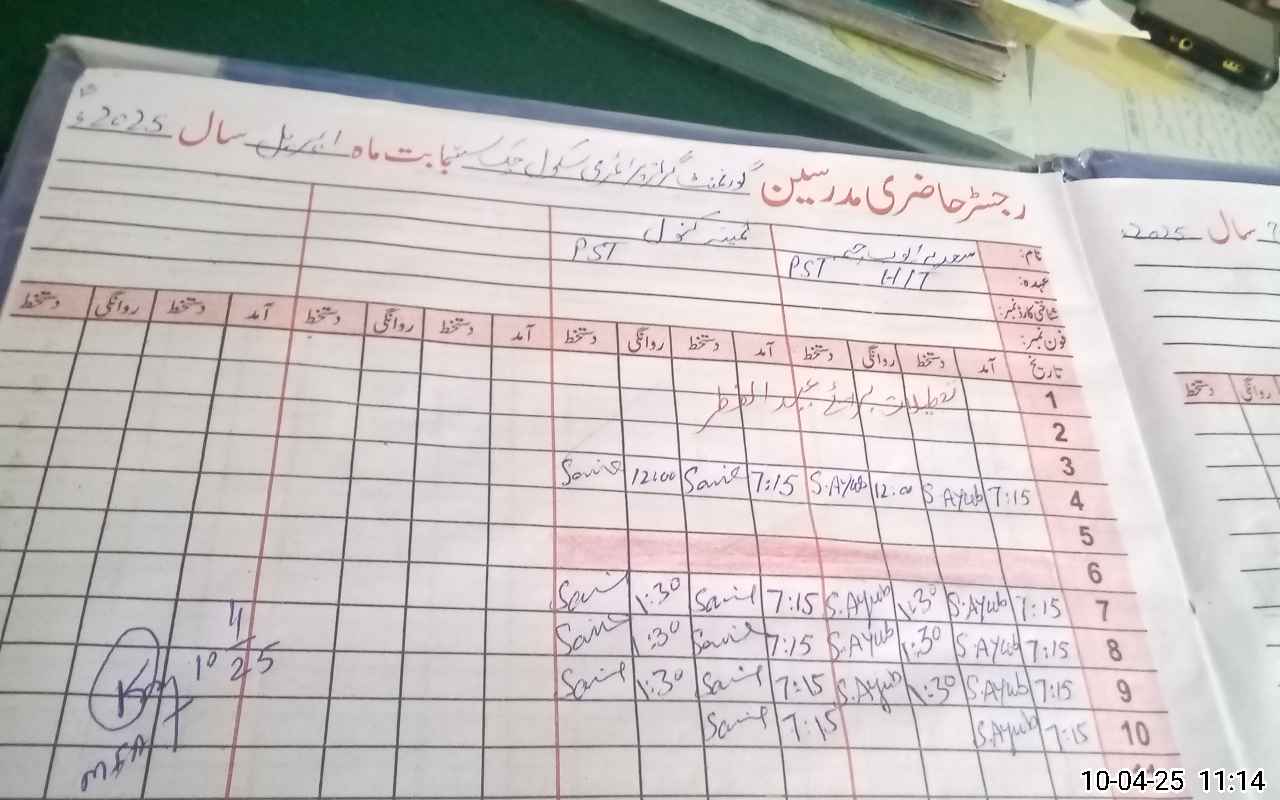 رجسٹر حاضری مدرسین گورنمنٹ گرلز پرائمری سکول چک بابت ماہ اپریل سال 2025ء
سال 2025
نام: سعدیہ ایوب ثمینہ کنول
عہدہ: PST H/T PST
شناختی کارڈ نمبر:
فون نمبر:
تاریخ آمد دستخط روانگی دستخط آمد دستخط روانگی دستخط آمد دستخط روانگی دستخط آمد دستخط روانگی دستخط
روانگی دستخط
1 تعطیلات برائے عید الفطر
2
3
4 7:15 S.Ayub 12:00 S.Ayub 7:15 12:00
5
6
7 7:15 S.Ayub 1:30 S.Ayub 7:15 1:30
8 7:15 S.Ayub 1:30 S.Ayub 7:15 1:30
9 7:15 S.Ayub 1:30 S.Ayub 7:15 1:30
10 7:15 S.Ayub 7:15
10/4/25
MEA
10-04-25 11:14